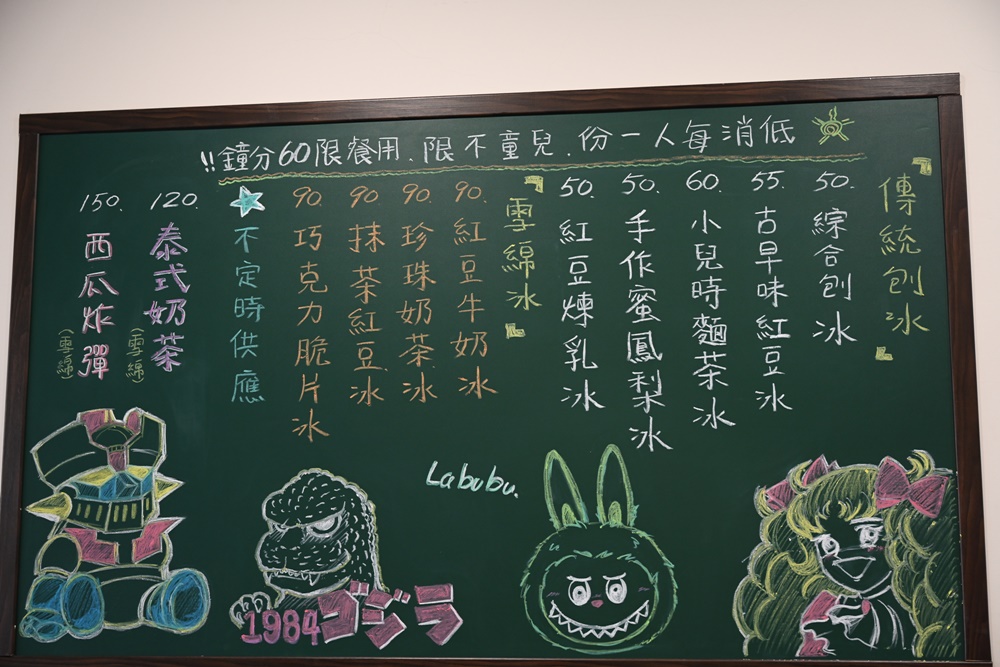 低消每人一份、兒童不限、用餐限60分鐘!!
『傳統刨冰』
50. 綜合刨冰
55. 古早味紅豆冰
60. 小兒時麵茶冰
50. 手作蜜鳳梨冰
50. 紅豆煉乳冰
『雪綿冰』
90. 紅豆牛奶冰
90. 珍珠奶茶冰
90. 抹茶紅豆冰
90. 巧克力脆片冰
不定時供應
120. 泰式奶茶
(雪綿)
150. 西瓜炸彈
(雪綿)
Labubu.
1984ゴジラ